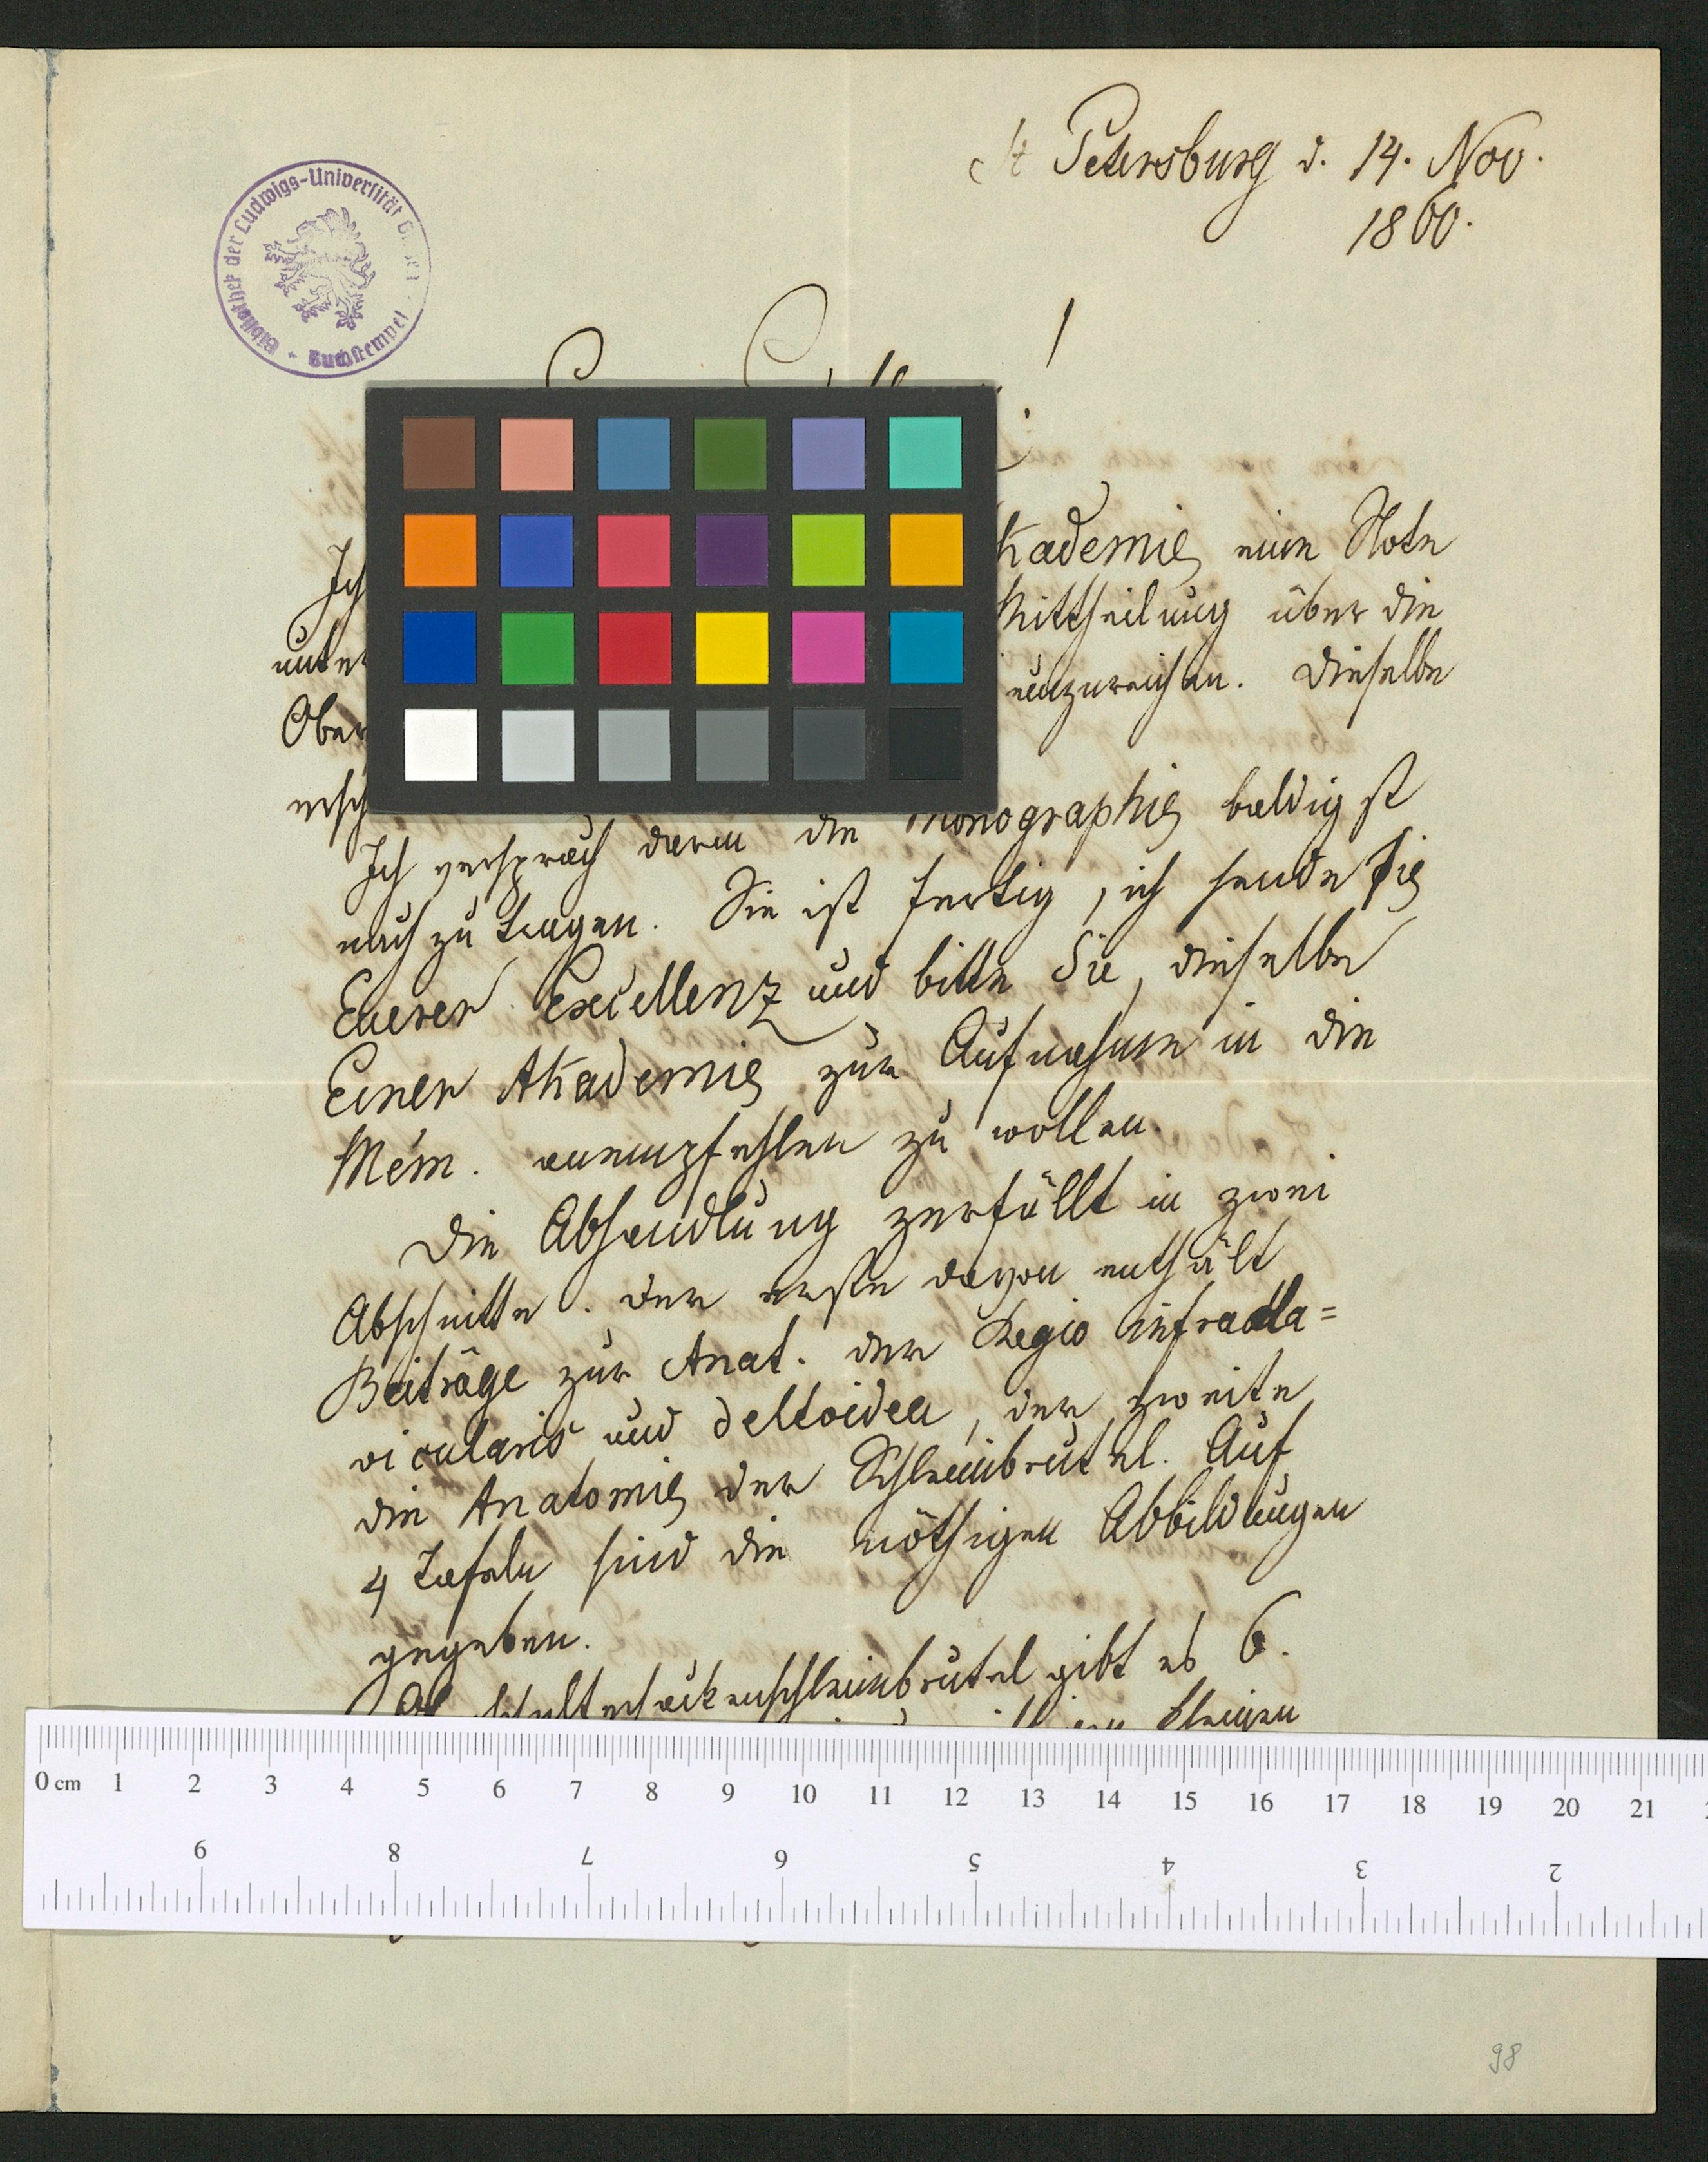 St Petersburg d. 14. Nov.
1860.
Bibliothek der Ludwigs-Universität
Buchstempel
Ich
kademie eine Note
unter
Mittheilung über die
Ober
einzureichen. Dieselbe
ersch
Ich versprach darin die Monographie baldigst
nach zu tragen. Sie ist fertig, ich sende sie
Euerer Excellenz und bitte Sie, dieselbe
Einer Akademie zur Aufnahme in die
Mém. anempfehlen zu wollen.
Die Abhandlung zerfällt in zwei
Abschnitte. Der erste davon enthält
Beiträge zur Anat. der Regio infracla=
vicularis und deltoidea, der zweite
die Anatomie der Schleimbeutel. Auf
4 Tafeln sind die nöthigen Abbildungen
gegeben.
gibt es 6.
kleinen
0 cm 1 2 3 4 5 6 7 8 9 10 11 12 13 14 15 16 17 18 19 20 21
9 8 7 6 5 4 3 2
98